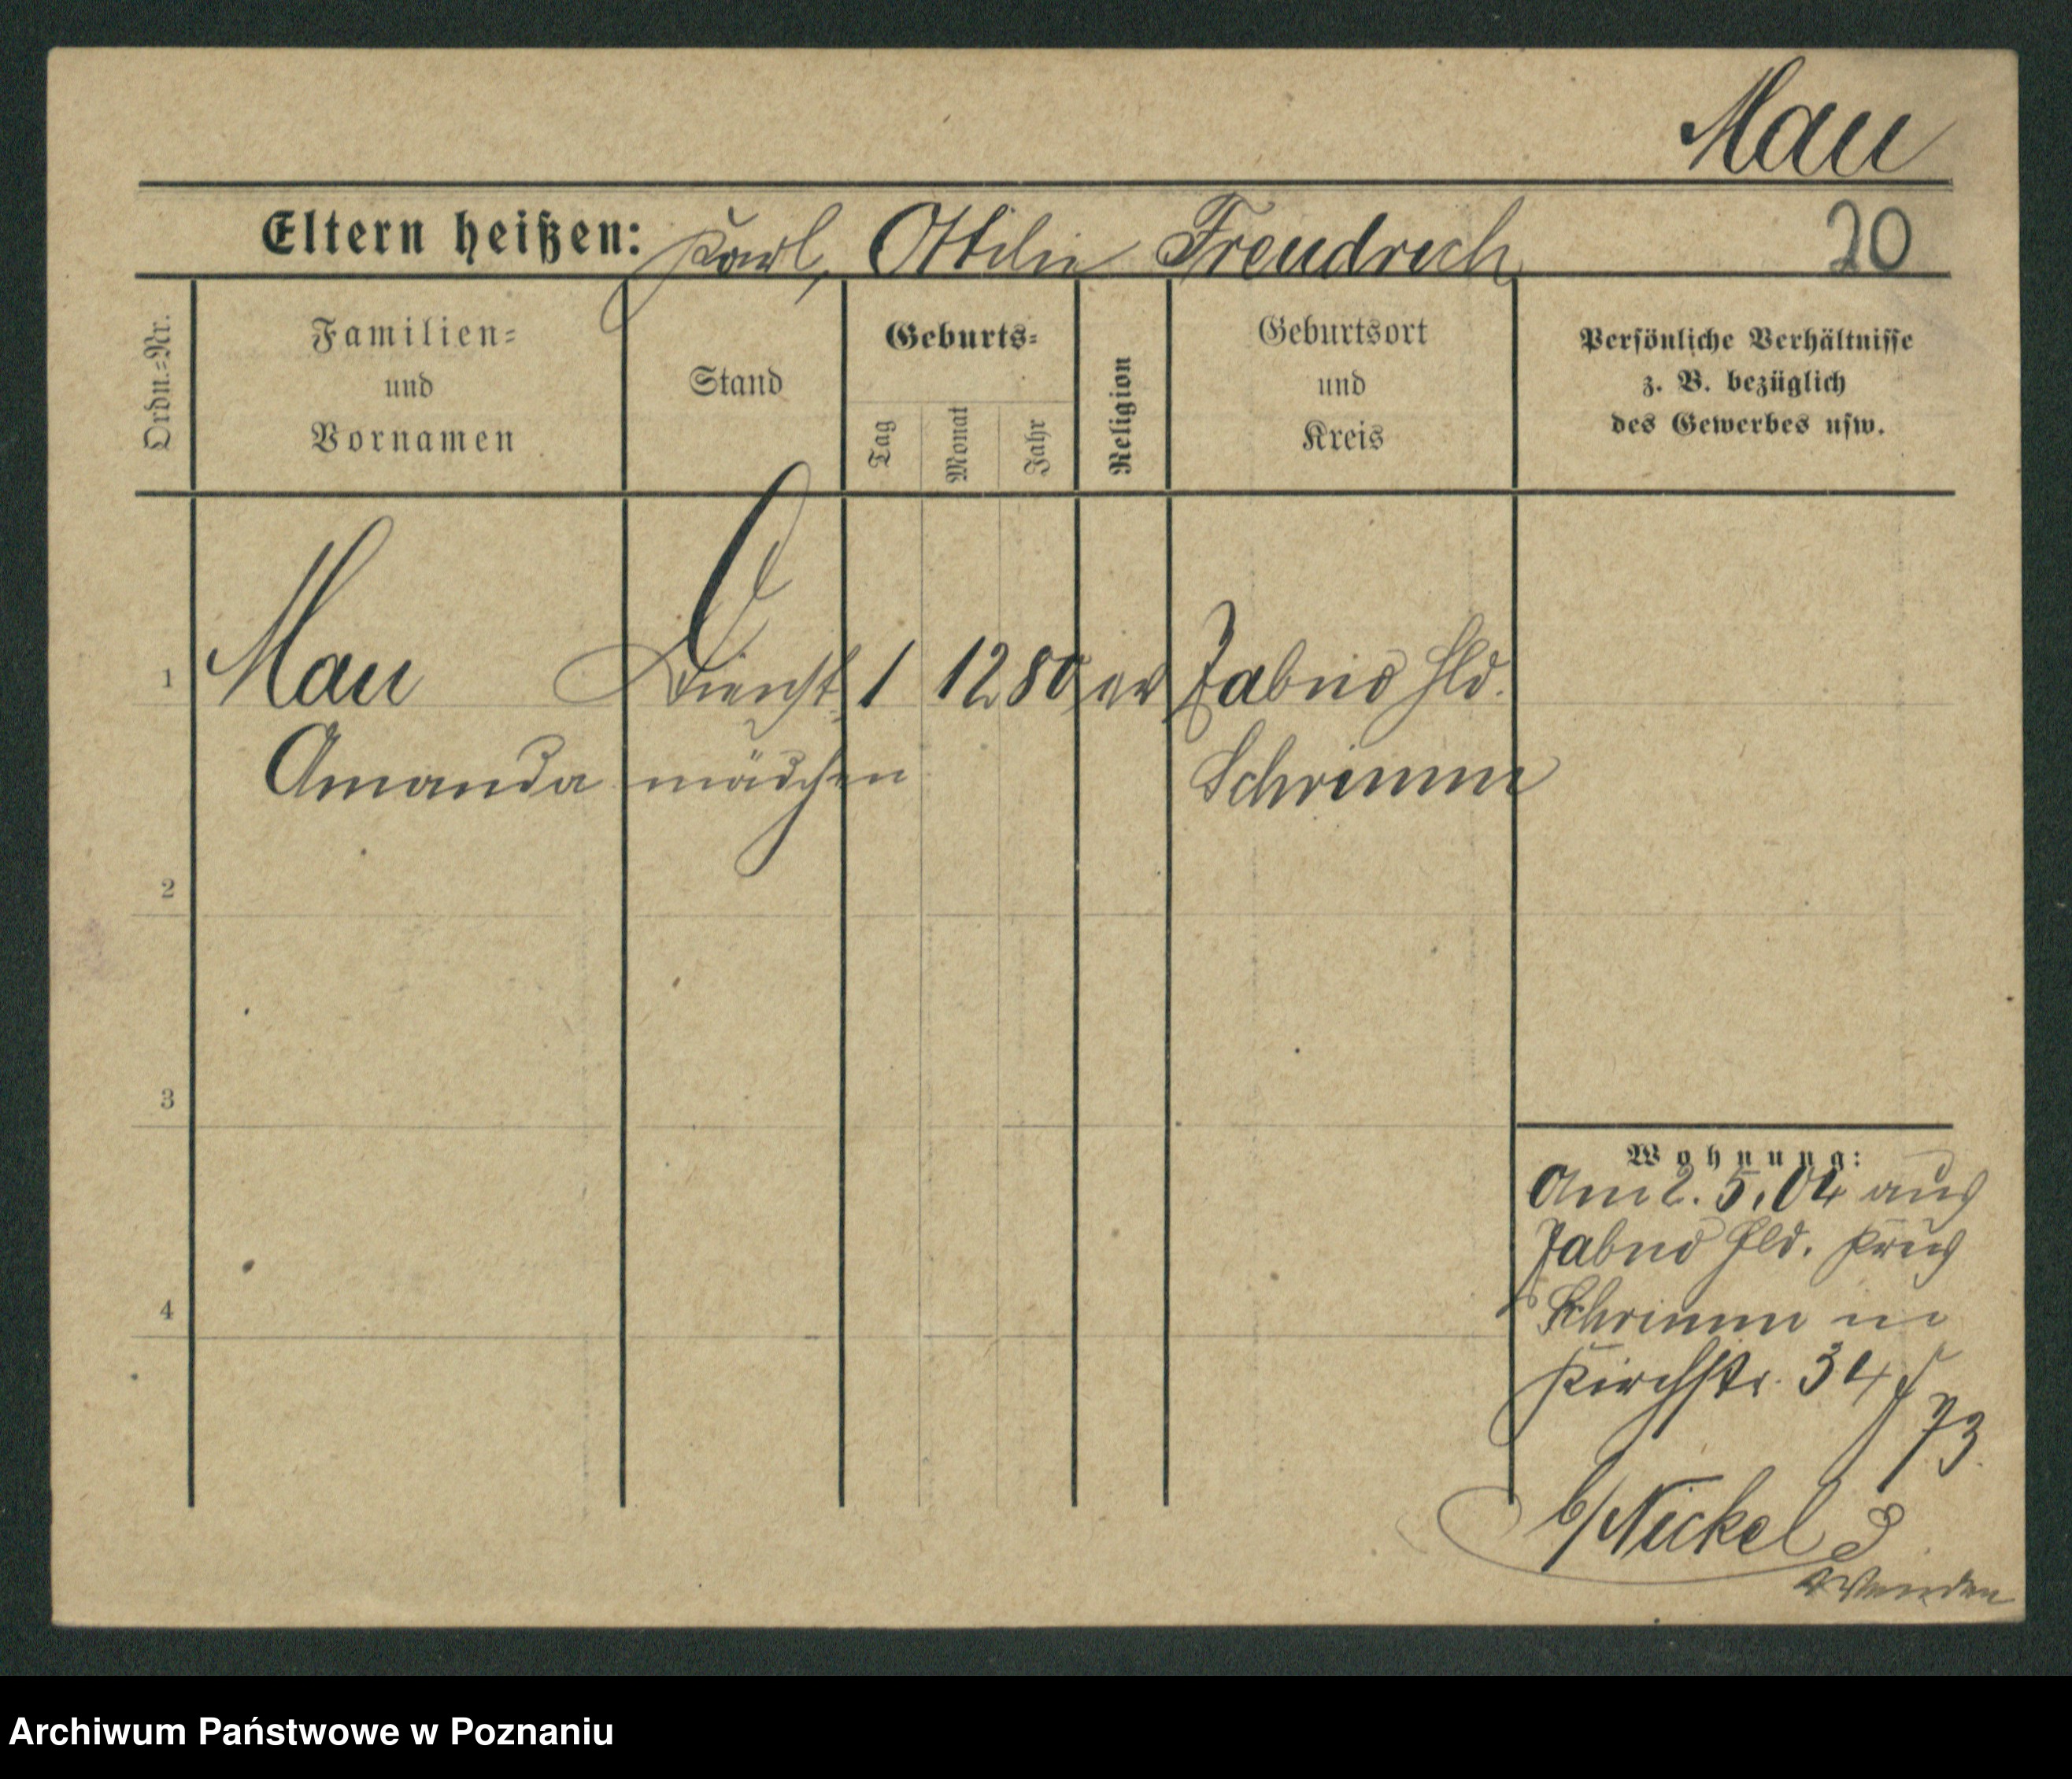 Mau
Eltern heißen: Karl, Ottilie Freudrich
20
Ordn.-Nr.
Familien- und Vornamen
Stand
Geburts-
Tag
Monat
Jahr
Religion
Geburtsort und Kreis
Persönliche Verhältnisse z. B. bezüglich des Gewerbes usw.
1 Mau Dienst 1 12 80 ev Zabno Hld.
Amanda mädchen Schrimm
2
3
4
Wohnung:
Am 2. 5. 04 aus
Zabno Hld. Kreis
Schrimm in
Kirchstr. 34
73.
b/Nickel
Wenden
Archiwum Państwowe w Poznaniu